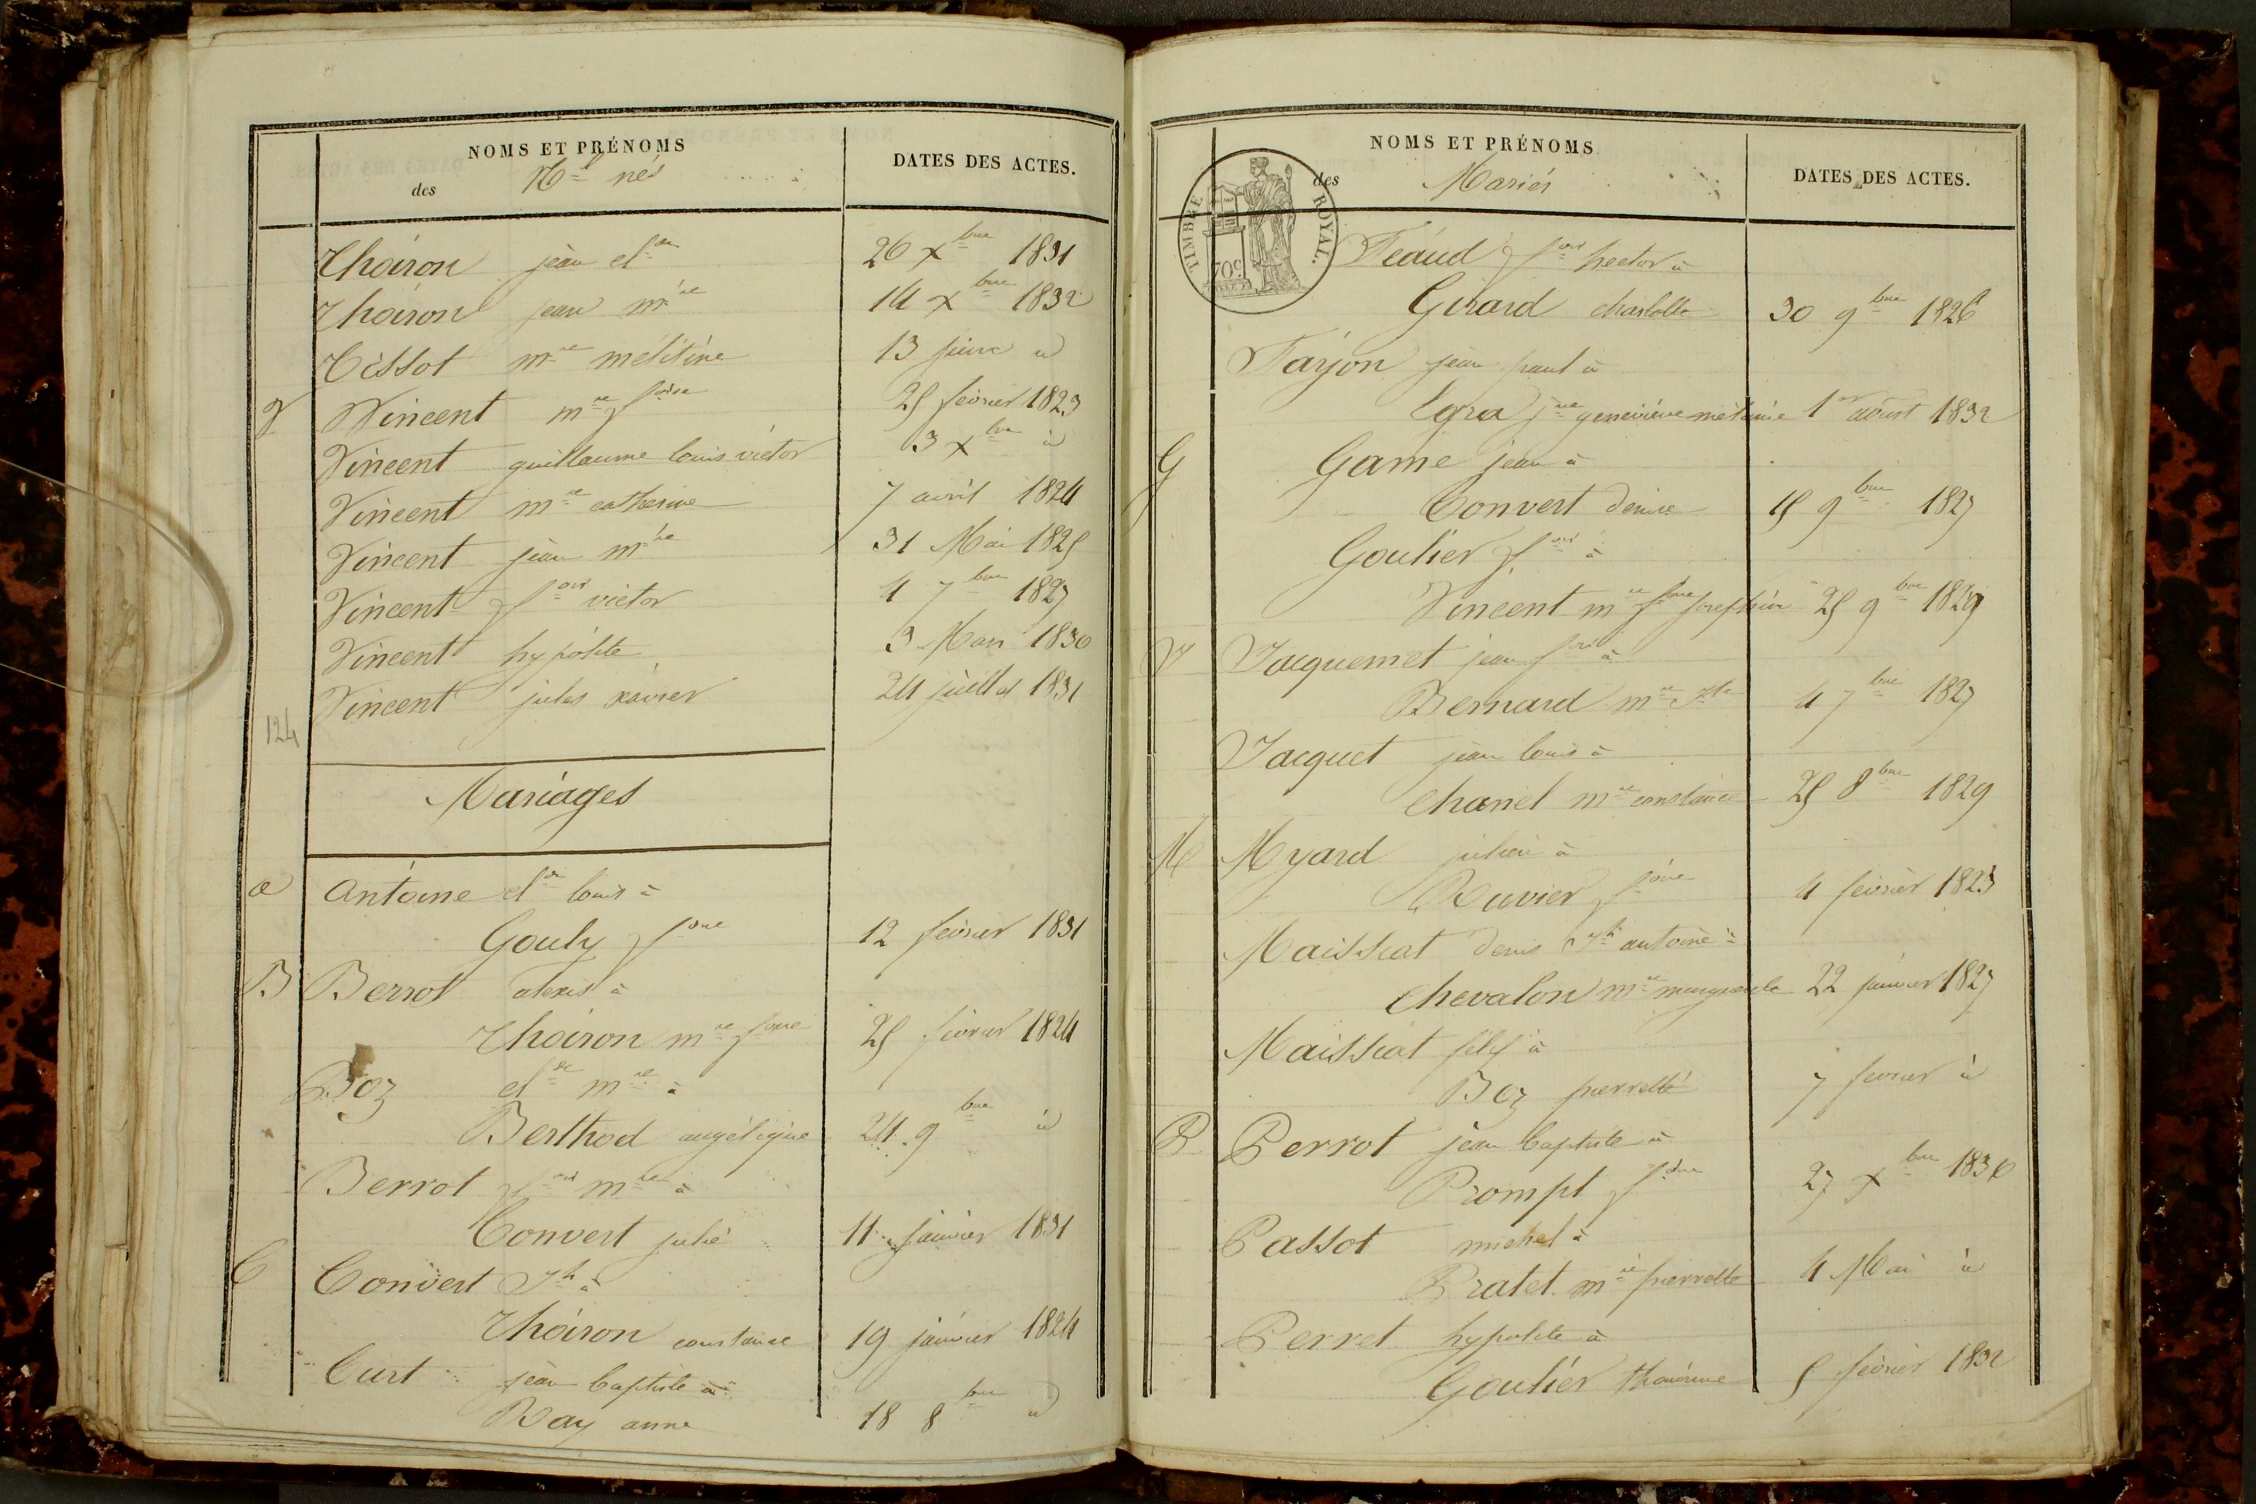 NOMS ET PRÉNOMS
des Nés
DATES DES ACTES.
Thoiron jean clde 26 Xbre 1831
Thoiron jean mrie 14 Xbre 1832
Tissot mrie mélitine 13 juin id
V Vincent mrie fsoise 25 février 1823
Vincent guillaume louis victor 3 Xbre id
Vincent mrie catherine 7 avril 1824
Vincent jean mrie 31 Mai 1825
Vincent fsois victor 4 7bre 1827
Vincent hypolite 3 Mars 1830
Vincent jules xavier 24 juillet 1831
124
Mariages
a Antoine clde louis à
Gouly fsoise 12 février 1831
B Berrot alexis à
Thoiron mrie fsoise 25 février 1824
Boz clde mrie à
Berthod angélique 24 9bre id
Berrot fsois mrie à
Convert julie 11 janvier 1831
C Convert Jh à
Thoiron constance 19 janvier 1824
Curt jean baptiste à
Ray anne 18 8bre id
NOMS ET PRÉNOMS
des Mariés
DATES DES ACTES.
TIMBRE ROYAL.
70c
Féaud fsois hector à
Girard charlotte 30 9bre 1826
Farjon jean paul à
Egra jne geneviève mélanie 1er août 1832
G Game jean à
Convert denise 15 9bre 1827
Goulier fsois à
Vincent mrie fsoise josephine 25 9bre 1829
J Jacquemet jean fsois à
Bernard mrie Jte 4 7bre 1827
Jacquet jean louis à
Chanel mrie constance 25 8bre 1829
M Myard julien à
Ruvier fsoise 4 février 1823
Maissiat denis Jh antoine à
Chevalon mrie marguerite 22 janvier 1827
Maissiat félix à
Boz pierrette 7 février id
P Perrot jean baptiste à
Prompt fsoise 27 Xbre 1830
Passot michel à
Pratet mrie pierrette 4 Mai id
Perret hypolite à
Goulier 5 février 1832